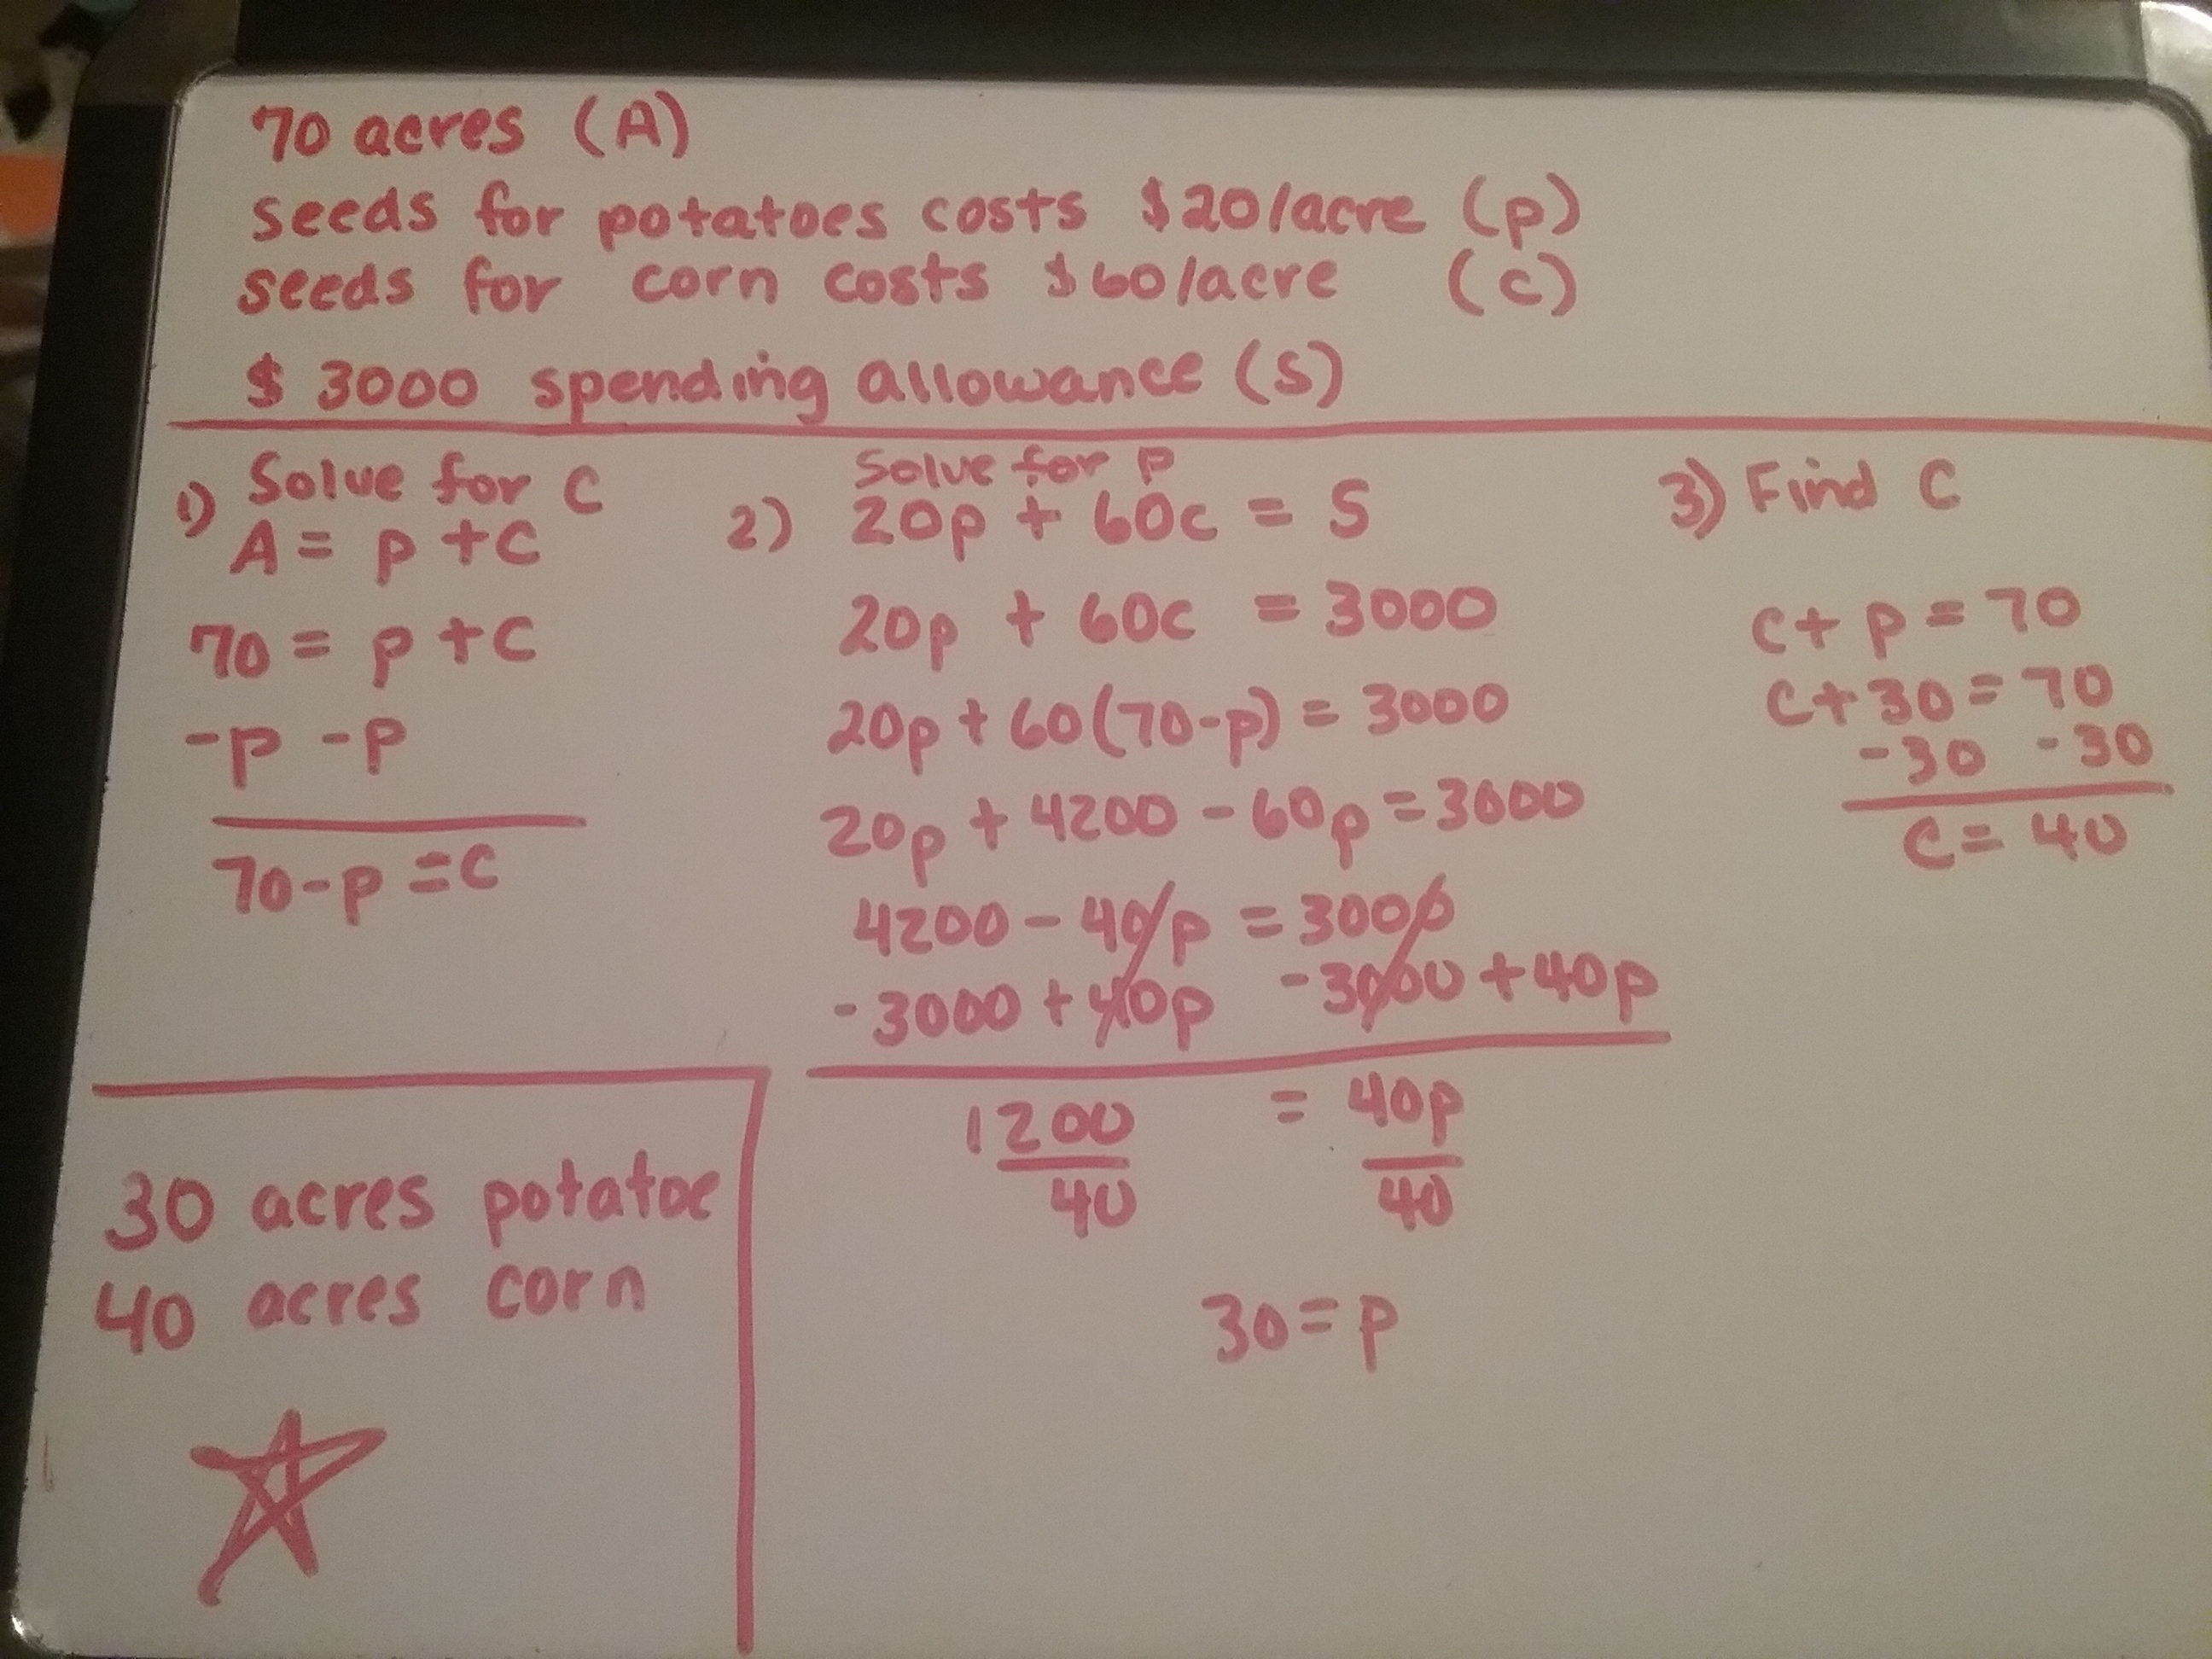 70 acres (A)
seeds for potatoes costs $20/acre (p)
seeds for corn costs $60/acre (c)
$ 3000 spending allowance (S)
1) Solve for C
A = p + C
70 = p + C
-p -p
70-p = C
2) Solve for P
20p + 60c = S
20p + 60c = 3000
20p + 60(70-p) = 3000
20p + 4200 - 60p = 3000
4200 - 40p = 3000
-3000 + 40p -3000 + 40p
1200 = 40p
40 40
30 = p
3) Find C
C + p = 70
C + 30 = 70
-30 -30
C = 40
30 acres potatoe
40 acres corn